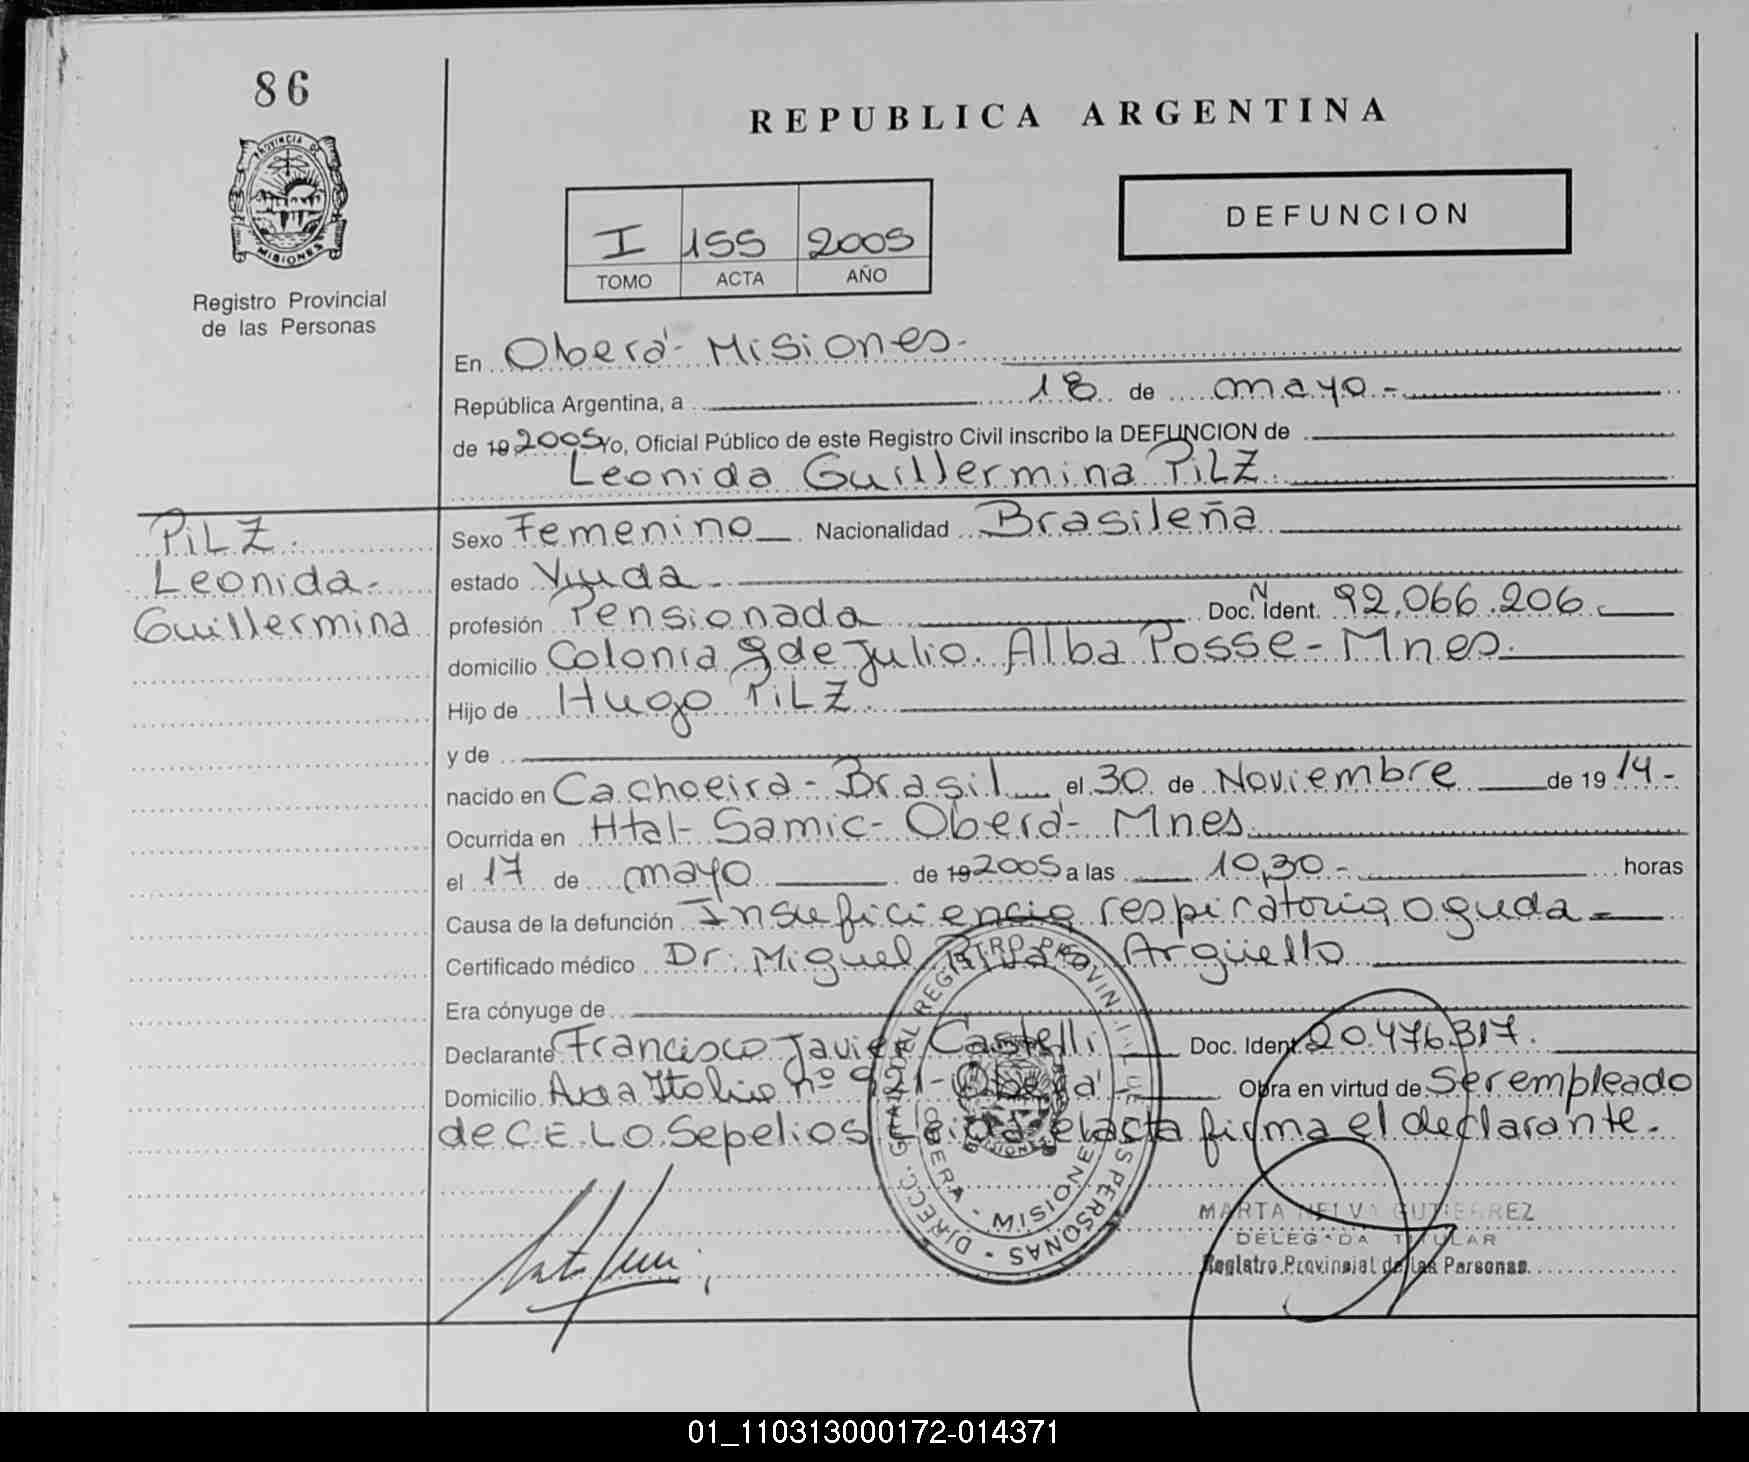 86
PROVINCIA DE
MISIONES
Registro Provincial
de las Personas
REPUBLICA ARGENTINA
I 155 2005
TOMO ACTA AÑO
DEFUNCION
En Oberá - Misiones.-
República Argentina, a 18 de mayo.-
de 19 2005 Yo, Oficial Público de este Registro Civil inscribo la DEFUNCION de
Leonida Guillermina PiLZ.
PiLZ.
Leonida-
Guillermina
Sexo Femenino Nacionalidad Brasileña
estado Viuda.-
profesión Pensionada Doc. N Ident. 92.066.206.
domicilio Colonia 9 de Julio. Alba Posse - Mnes.
Hijo de Hugo PiLZ.
y de
nacido en Cachoeira - Brasil el 30 de Noviembre de 19 14.-
Ocurrida en Htal - Samic - Oberá - Mnes.
el 17 de mayo de 19 2005 a las 10,30.- horas
Causa de la defunción Insuficiencia respiratoria aguda.-
Certificado médico Dr. Miguel Argüello
Era cónyuge de
Declarante Francisco Javier Castelli Doc. Ident. 20.476.317.
Domicilio Avda Italia nº 921 - Oberá - Obra en virtud de Ser empleado
de C.E.L.O. Sepelios. Leida el acta firma el declarante.-
DIRECC. GRAL. DEL REGISTRO PROVINCIAL DE LAS PERSONAS
OBERA - MISIONES
MARTA NELVA GUTIERREZ
DELEGADA TITULAR
Registro Provincial de las Personas
01_110313000172-014371